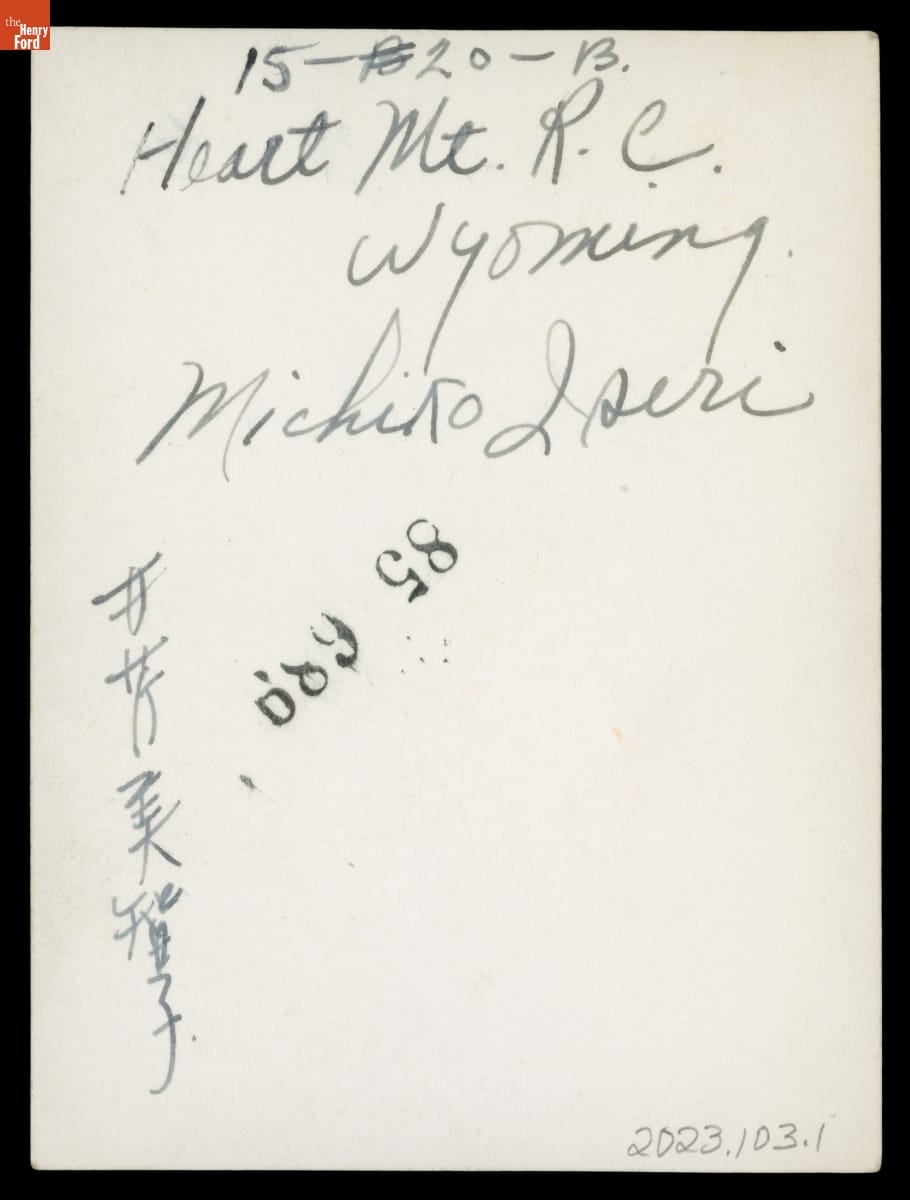 the
Henry
Ford
15-20-B.
Heart Mt. R. C.
Wyoming.
Michiko Iseri
井芹美智子
85
2023.103.1